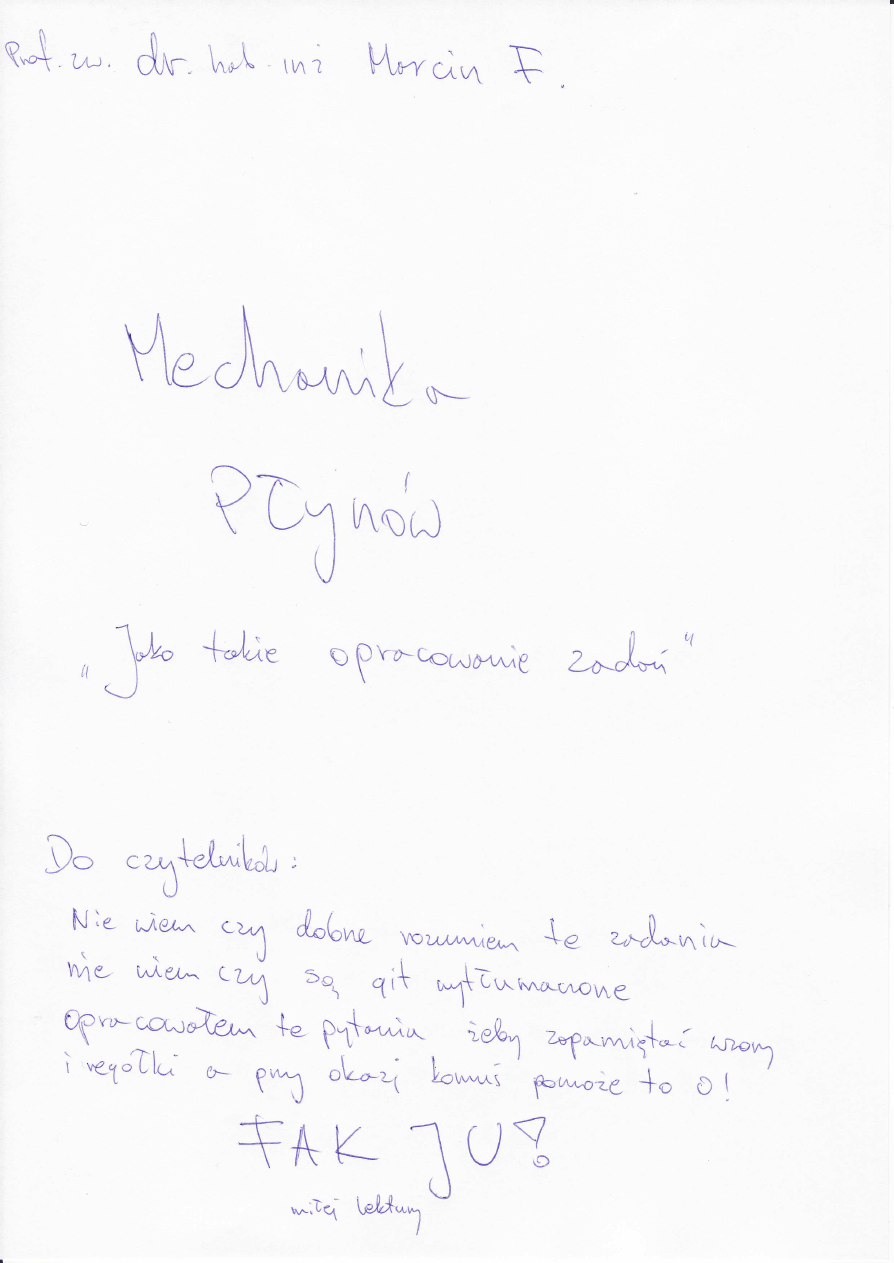 Prof. zw. dr. hab. inż Marcin F.
Mechanika
Płynów
„Jako takie opracowanie zadań"
Do czytelników:
Nie wiem czy dobrze rozumiem te zadania
nie wiem czy są git wytłumaczone
opracowałem te pytania żeby zapamiętać wzory
i regółki a przy okazj komuś pomoże to o!
FAK JU!
miłej lektury